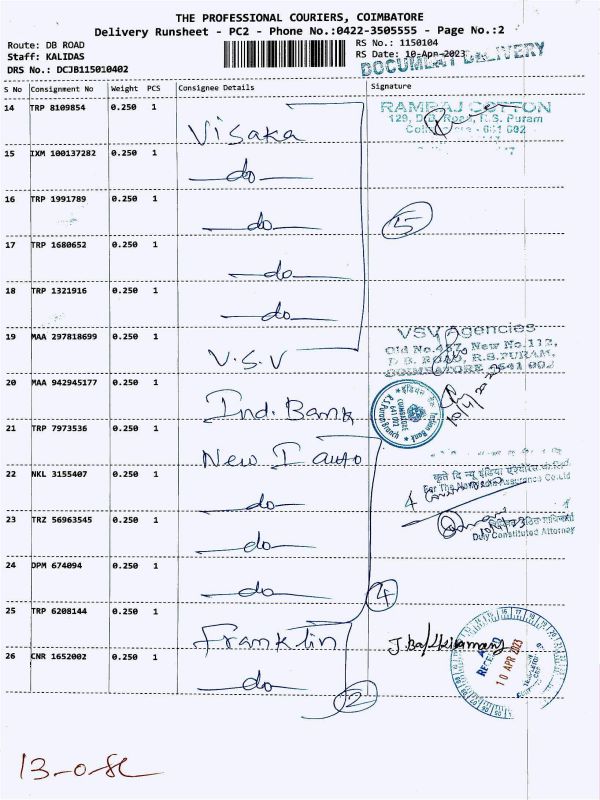 THE PROFESSIONAL COURIERS, COIMBATORE
Delivery Runsheet - PC2 - Phone No.:0422-3505555 - Page No.:2
Route: DB ROAD
Staff: KALIDAS
DRS No.: DCJB115010402
RS No.: 1150104
RS Date: 10-Apr-2023
DOCUMENT DELIVERY
S No Consignment No Weight PCS Consignee Details Signature
14 TRP 8109854 0.250 1 Visaka
RAMRAJ COTTON
129, D.B. Road, R.S. Puram
Coimbatore - 641 002
15 IXM 100137282 0.250 1 do
16 TRP 1991789 0.250 1 do
5
17 TRP 1680652 0.250 1 do
18 TRP 1321916 0.250 1 do
19 MAA 297818699 0.250 1 V.S.V
VSV Agencies
Old No.437, New No.112,
D B. ROAD, R.S.PURAM,
COIMBATORE - 641 002
20 MAA 942945177 0.250 1 Ind. Bank
Indian Bank
R.S.Puram Branch
COIMBATORE
641 002
21 TRP 7973536 0.250 1 New I auto
22 NKL 3155407 0.250 1 do
For The New India Assurance Co.Ltd
23 TRZ 56963545 0.250 1 do
Duly Constituted Attorney
24 DPM 674094 0.250 1 do
4
25 TRP 6208144 0.250 1 Franklin
26 CNR 1652002 0.250 1 do
2
RECEIVED
10 APR 2023